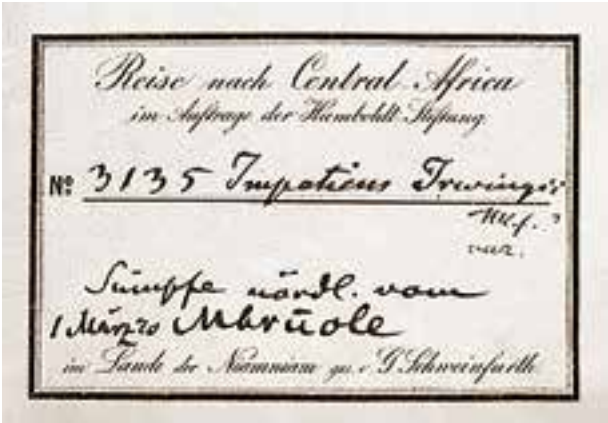 Reise nach Central Africa
im Auftrage der Humboldt Stiftung
Nº 3135 Impatiens Irwingii
Hk.f. ?
var.
Sümpfe nördl. vom
1 März 70 Mbrūole
im Lande der Niamniam ges. v. G. Schweinfurth